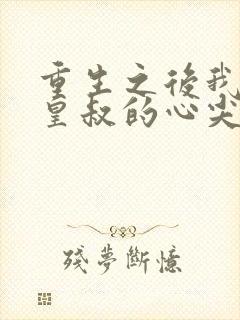 重生之後我
皇叔的心尖
殘夢斷憶